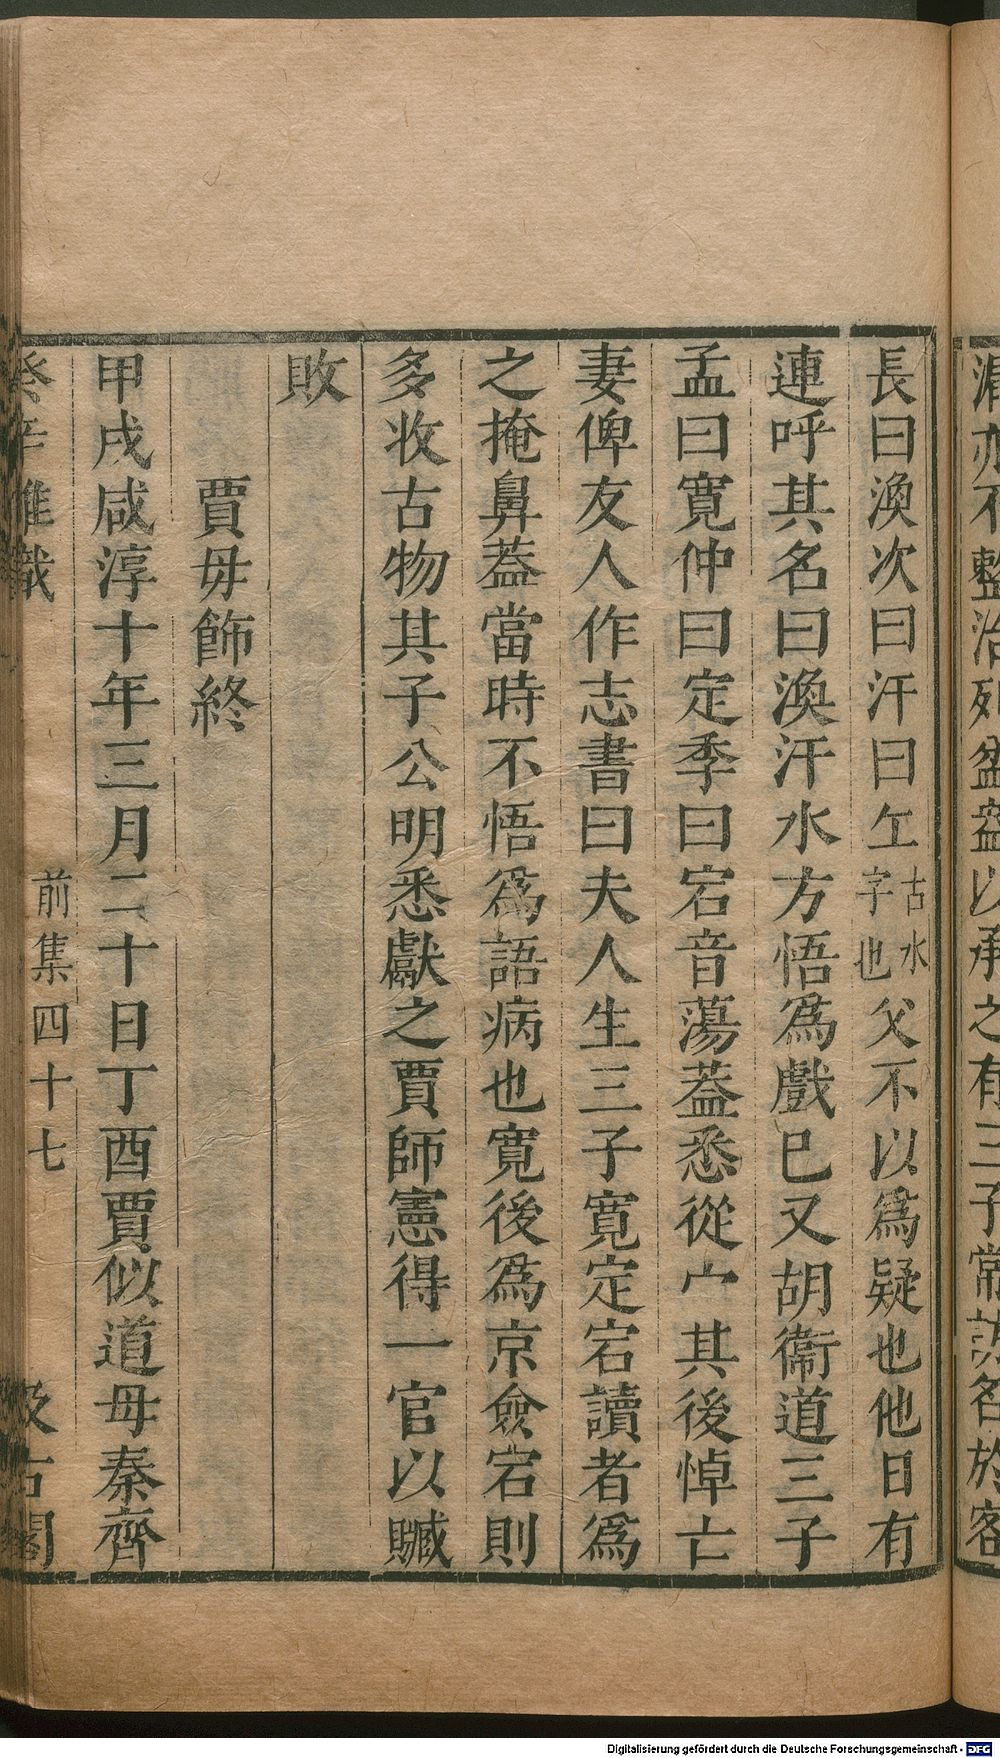 漏亦不整治列盆盎以承之有三子常訪名於客
長曰渙次曰汗曰㲼古水字也父不以爲疑也他日有
連呼其名曰渙汗水方悟爲戲巳又胡衞道三子
孟曰寬仲曰定季曰宕音蕩蓋悉從宀其後悼亡
妻俾友人作志書曰夫人生三子寬定宕讀者爲
之掩鼻蓋當時不悟爲語病也寬後爲京僉宕則
多收古物其子公明悉獻之賈師憲得一官以贓
敗
賈母飾終
甲戌咸淳十年三月二十日丁酉賈似道母秦齊
癸辛雜識 前集四十七 汲古閣
Digitalisierung gefördert durch die Deutsche Forschungsgemeinschaft - DFG